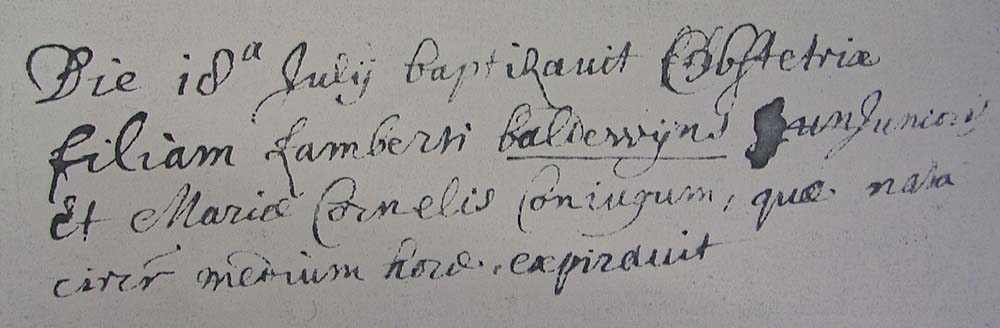 Die 18a Julij baptizavit Obstetrix
filiam Lamberti baldewijns Junioris
Et Mariæ Cornelis Coniugum, quæ nata
circr medium horæ expiravit